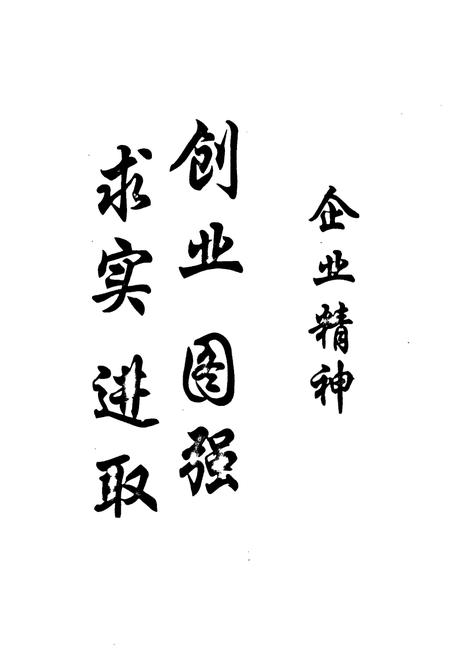 企业精神
创业 图强
求实 进取